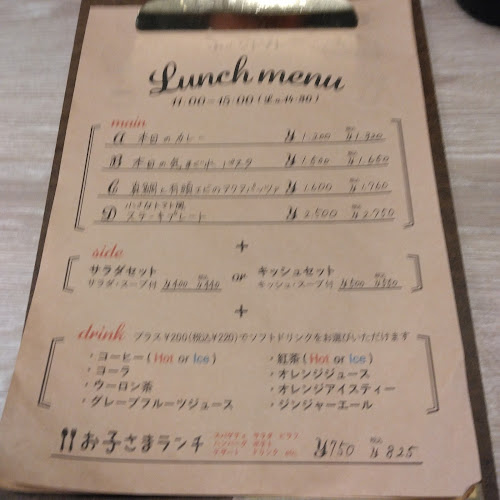 Lunch menu
11:00-15:00 (
main
A 本日のカレー ¥1,200 税込 ¥1,320
B 本日の気まぐれパスタ ¥1,500 税込 ¥1,650
C 真鯛と有頭エビのアクアパッツァ ¥1,600 税込 ¥1,760
D ステーキプレート ¥2,500 税込 ¥2,750
+
side
サラダセット or キッシュセット
サラダ・スープ付 ¥400 税込 ¥440 キッシュ・スープ付 ¥500 税込 ¥550
+
drink プラス¥200(税込¥220)でソフトドリンクをお選びいただけます
・コーヒー(Hot or Ice) ・紅茶(Hot or Ice)
・コーラ ・オレンジジュース
・ウーロン茶 ・オレンジアイスティー
・グレープフルーツジュース ・ジンジャーエール
お子さまランチ ¥750 税込 ¥825
スパゲティ サラダ ピラフ
ハンバーグ ポテト
デザート ドリンク etc